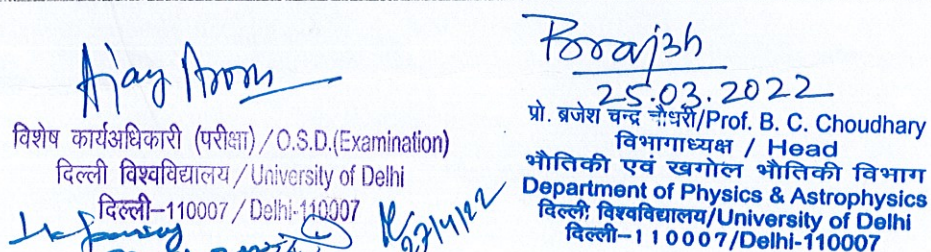 Ajay Arora
विशेष कार्यअधिकारी (परीक्षा) / O.S.D.(Examination)
दिल्ली विश्वविद्यालय / University of Delhi
दिल्ली–110007 / Delhi-110007
27/4/22
Brajesh
25.03.2022
प्रो. ब्रजेश चन्द्र चौधरी/Prof. B. C. Choudhary
विभागाध्यक्ष / Head
भौतिकी एवं खगोल भौतिकी विभाग
Department of Physics & Astrophysics
दिल्ली विश्वविद्यालय/University of Delhi
दिल्ली–110007/Delhi-110007